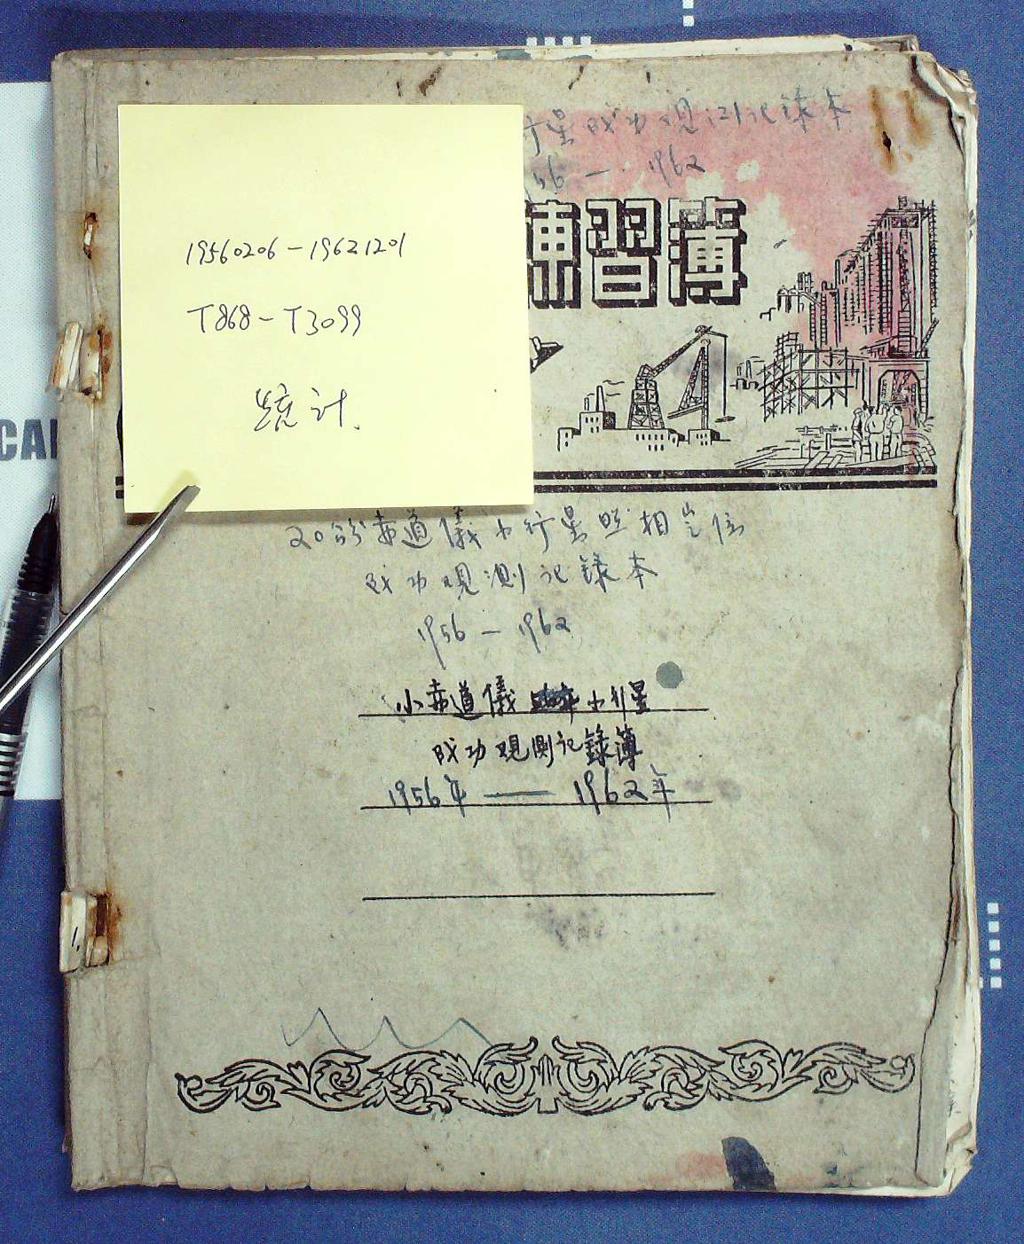 行星成功观测记錄本
1956 — 1962
練習簿
19560206－19621201
T868－T3099
统计.
20公分赤道儀小行星照相定位
成功观測记錄本
1956 — 1962
小赤道儀 小行星
成功观測记錄簿
1956年 —— 1962年
CAN